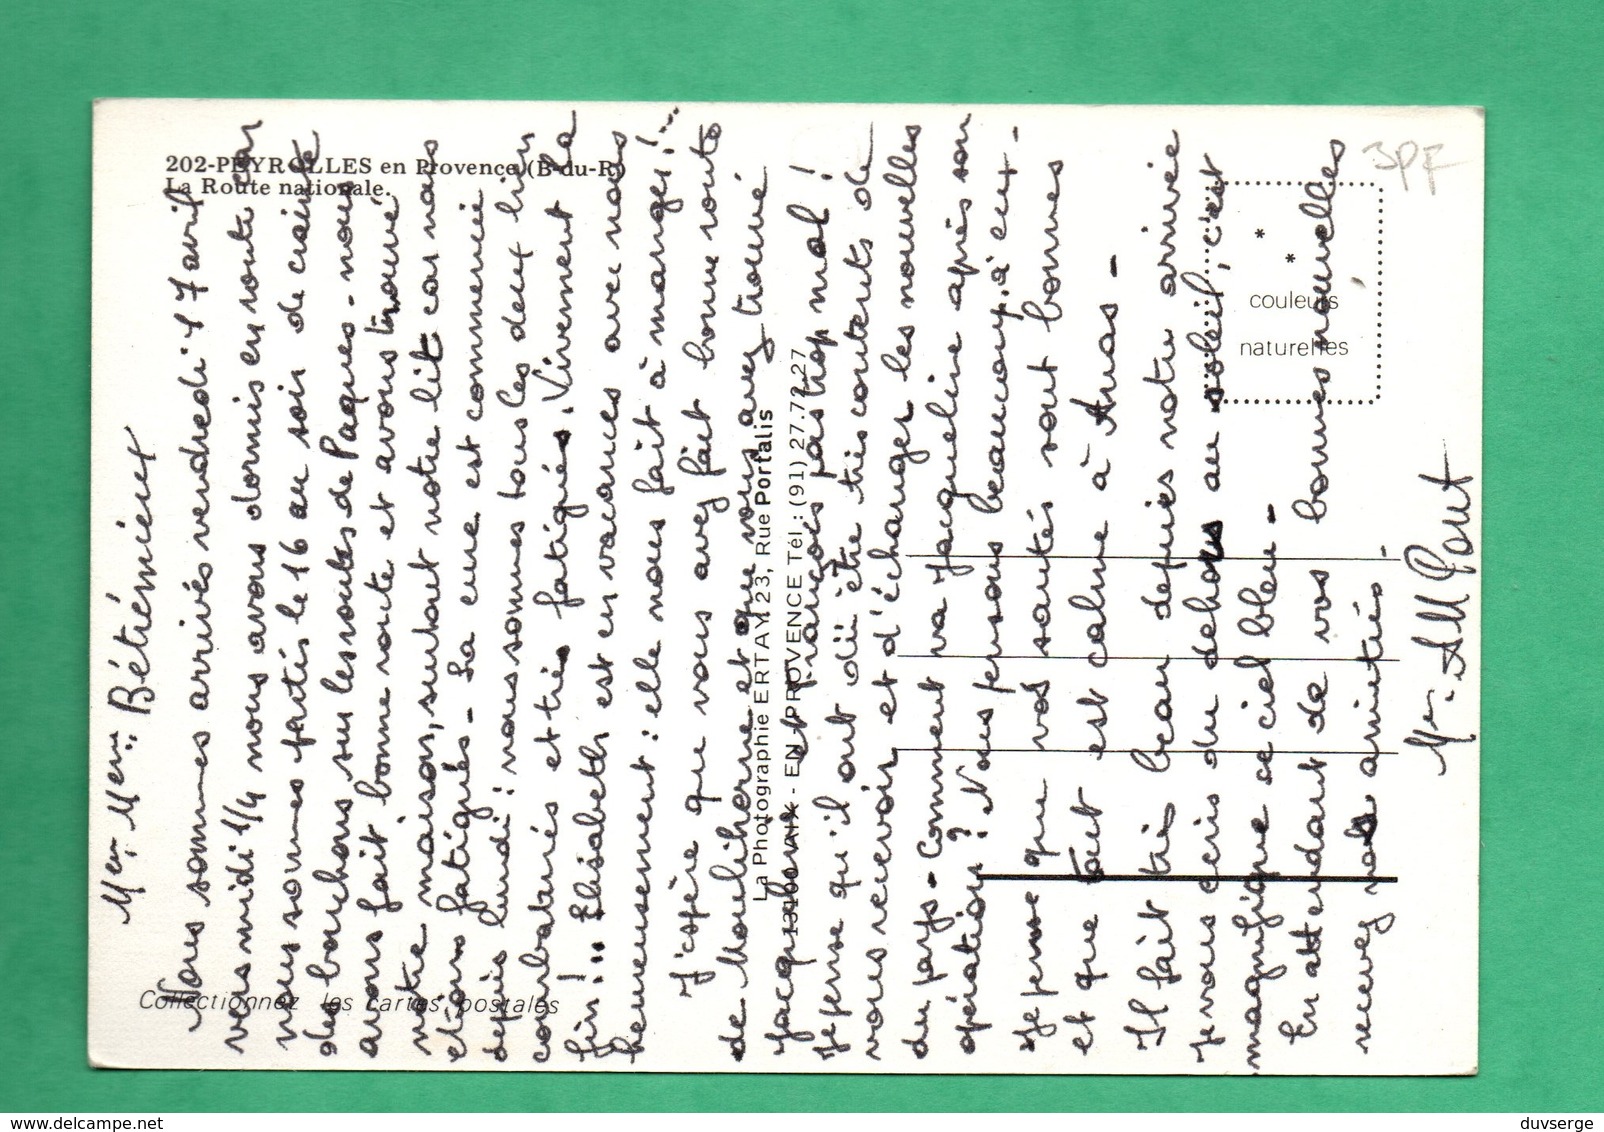 202-PEYROLLES en Provence (B-du-R)
La Route nationale.
Collectionnez les cartes postales
La Photographie ERTAM 23, Rue Portalis
13100 AIX - EN - PROVENCE Tél : (91) 27.72.27
*
*
couleurs
naturelles
3PF
Mer. Mem. Bétrémieux
Nous sommes arrivés vendredi 17 avril
vers midi 1/4 nous avons dormis en route car
nous sommes partis le 16 au soir de crainte
des bouchons sur les routes de Paques - nous
avons fait bonne route et avons trouvé
notre maison, surtout notre lit car nous
étions fatigués - La cure est commencée
depuis lundi : nous sommes tous les deux bien
courbaturés et très fatigués. Vivement la
fin !... Elisabeth est en vacances avec nous
heureusement : elle nous fait à manger !...
J'espère que vous avez fait bonne route
de Mouliherne et que vous avez trouvé
Jacqueline et François pas trop mal !
Je pense qu'il ont dû être très contents de
vous recevoir et d'échanger les nouvelles
du pays - Comment va Jacqueline après son
opération ? Nous pensons beaucoup à eux -
Je pense que vos santés sont bonnes
et que tout est calme à Arras -
Il fait très beau depuis notre arrivée
Je vous écris du dehors au soleil, c'est
magnifique ce ciel bleu -
En attendant de vos bonnes nouvelles
recevez nos amitiés -
Mr. AM Pout
duvserge
www.delcampe.net